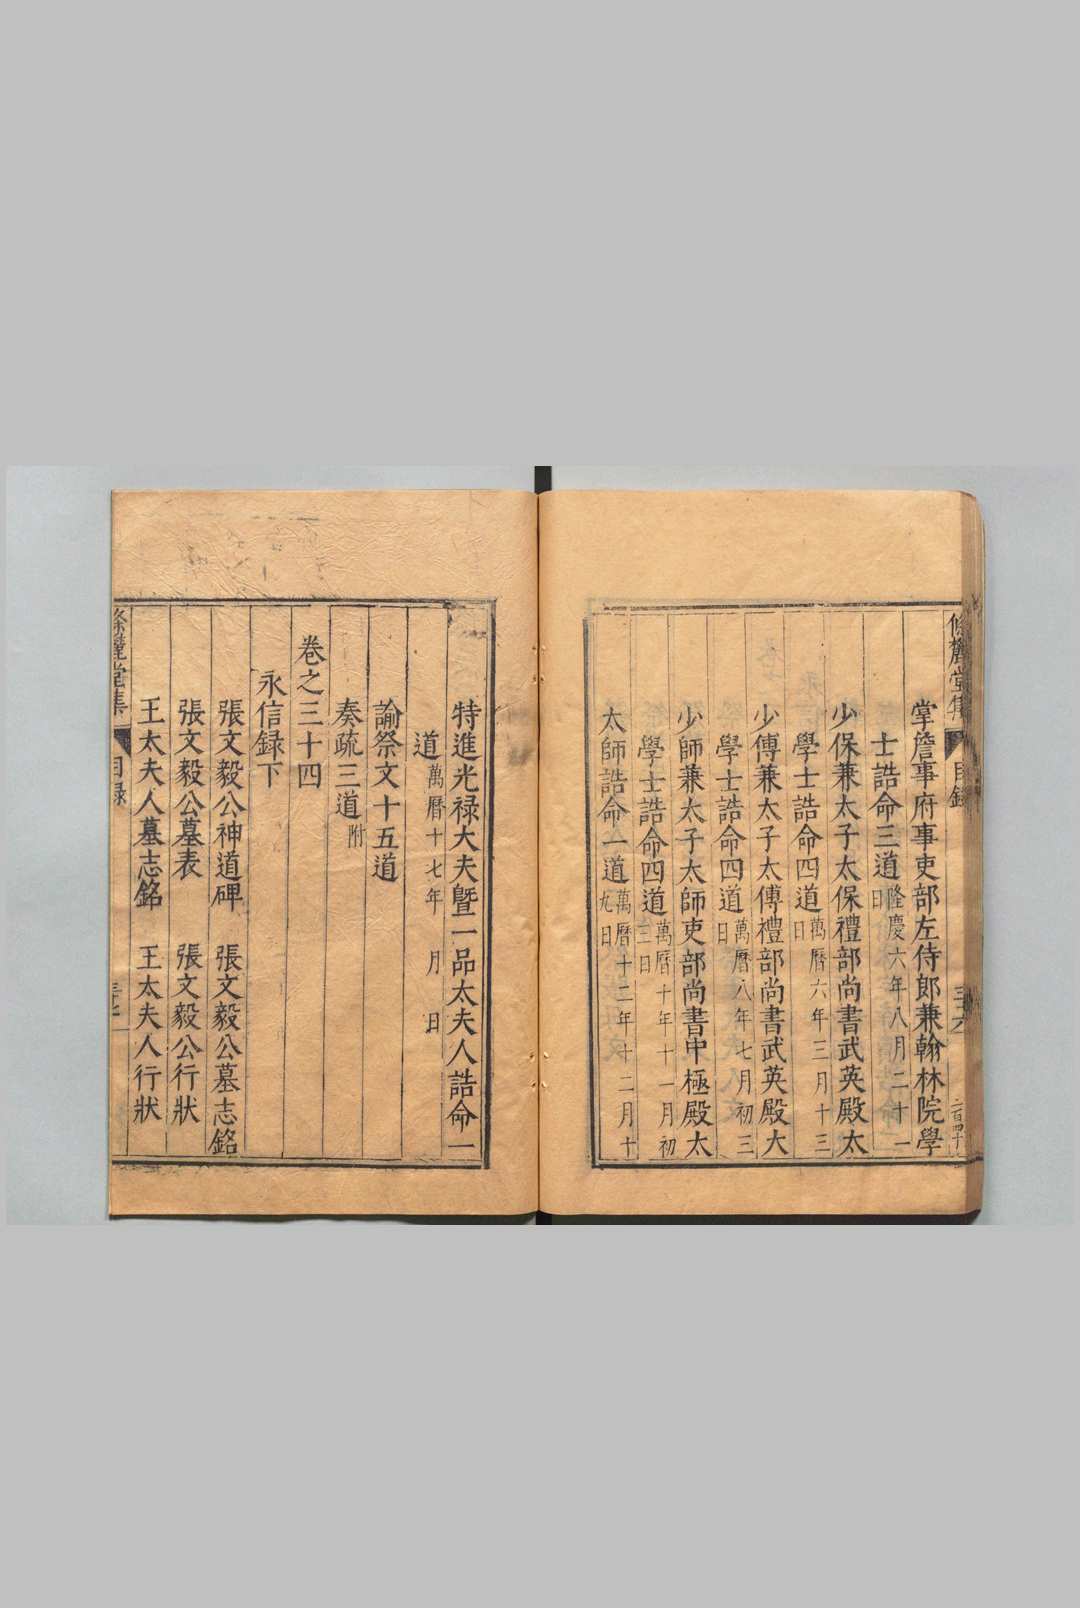 條麓堂集
目録
三十六
二百四十
掌詹事府事吏部左侍郎兼翰林院學
士誥命三道隆慶六年八月二十一
日
少保兼太子太保禮部尚書武英殿大
學士誥命四道萬曆六年三月十三
日
少傅兼太子太傅禮部尚書武英殿大
學士誥命四道萬曆八年七月初三
日
少師兼太子太師吏部尚書中極殿太
學士誥命四道萬曆十年十一月初
三日
太師誥命一道萬曆十二年十二月十
九日
特進光禄大夫暨一品太夫人誥命一
道萬曆十七年 月 日
諭祭文十五道
奏疏三道附
卷之三十四
永信録下
張文毅公神道碑 張文毅公墓志銘
張文毅公墓表 張文毅公行狀
王太夫人墓志銘 王太夫人行狀
條麓堂集
目録